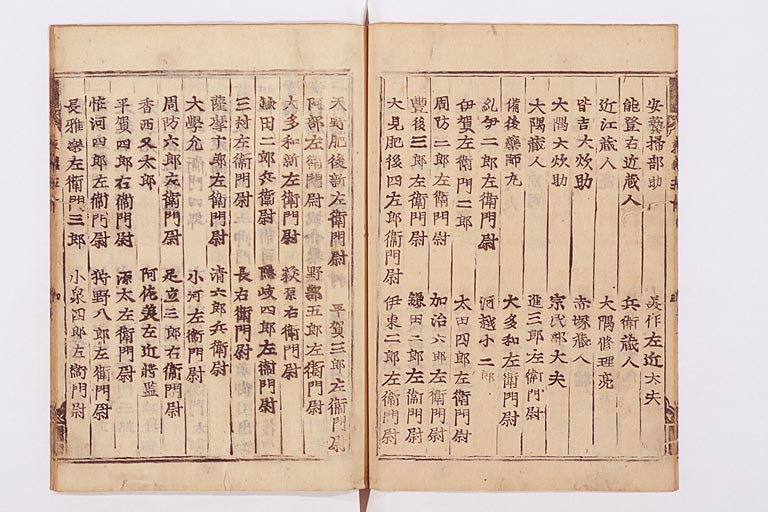 安藝掃部助　美作左近大夫
能登右近蔵人　兵衛蔵人
近江蔵人　大隅修理亮
皆吉大炊助　赤塚蔵人
大隅大炊助　宗民部大夫
大隅蔵人　進三郎左衛門尉
備後藥師丸　大多和左衛門尉
紀伊二郎左衛門尉　河越小二郎
伊賀左衛門二郎　太田四郎左衛門尉
周防二郎左衛門尉　加治六郎左衛門尉
豊後三郎左衛門尉　鎌田二郎左衛門尉
大見肥後四郎左衛門尉　伊東二郎左衛門尉
天野肥後新左衛門尉　平賀三郎左衛門尉
阿部左衛門尉　野部五郎左衛門尉
大多和新左衛門尉　萩原右衛門尉
鎌田二郎兵衛尉　隱岐四郎左衛門尉
三村左衛門尉　長右衛門尉
薩摩十郎左衛門尉　清六郎兵衛尉
大學允　小河左衛門尉
周防六郎左衛門尉　足立三郎右衛門尉
香西又太郎　阿佐美左近將監
平賀四郎右衛門尉　源太左衛門尉
恠河四郎左衛門尉　狩野八郎左衛門尉
長雅樂左衛門三郎　小泉四郎左衛門尉